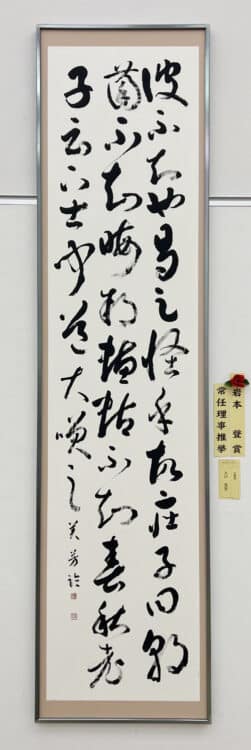 彼不知也曷足怪乎故莊子曰朝
菌不知晦朔蟪蛄不知春秋老
子云下士聞道大笑之 美芳臨
岩本 賞
常任理事推挙